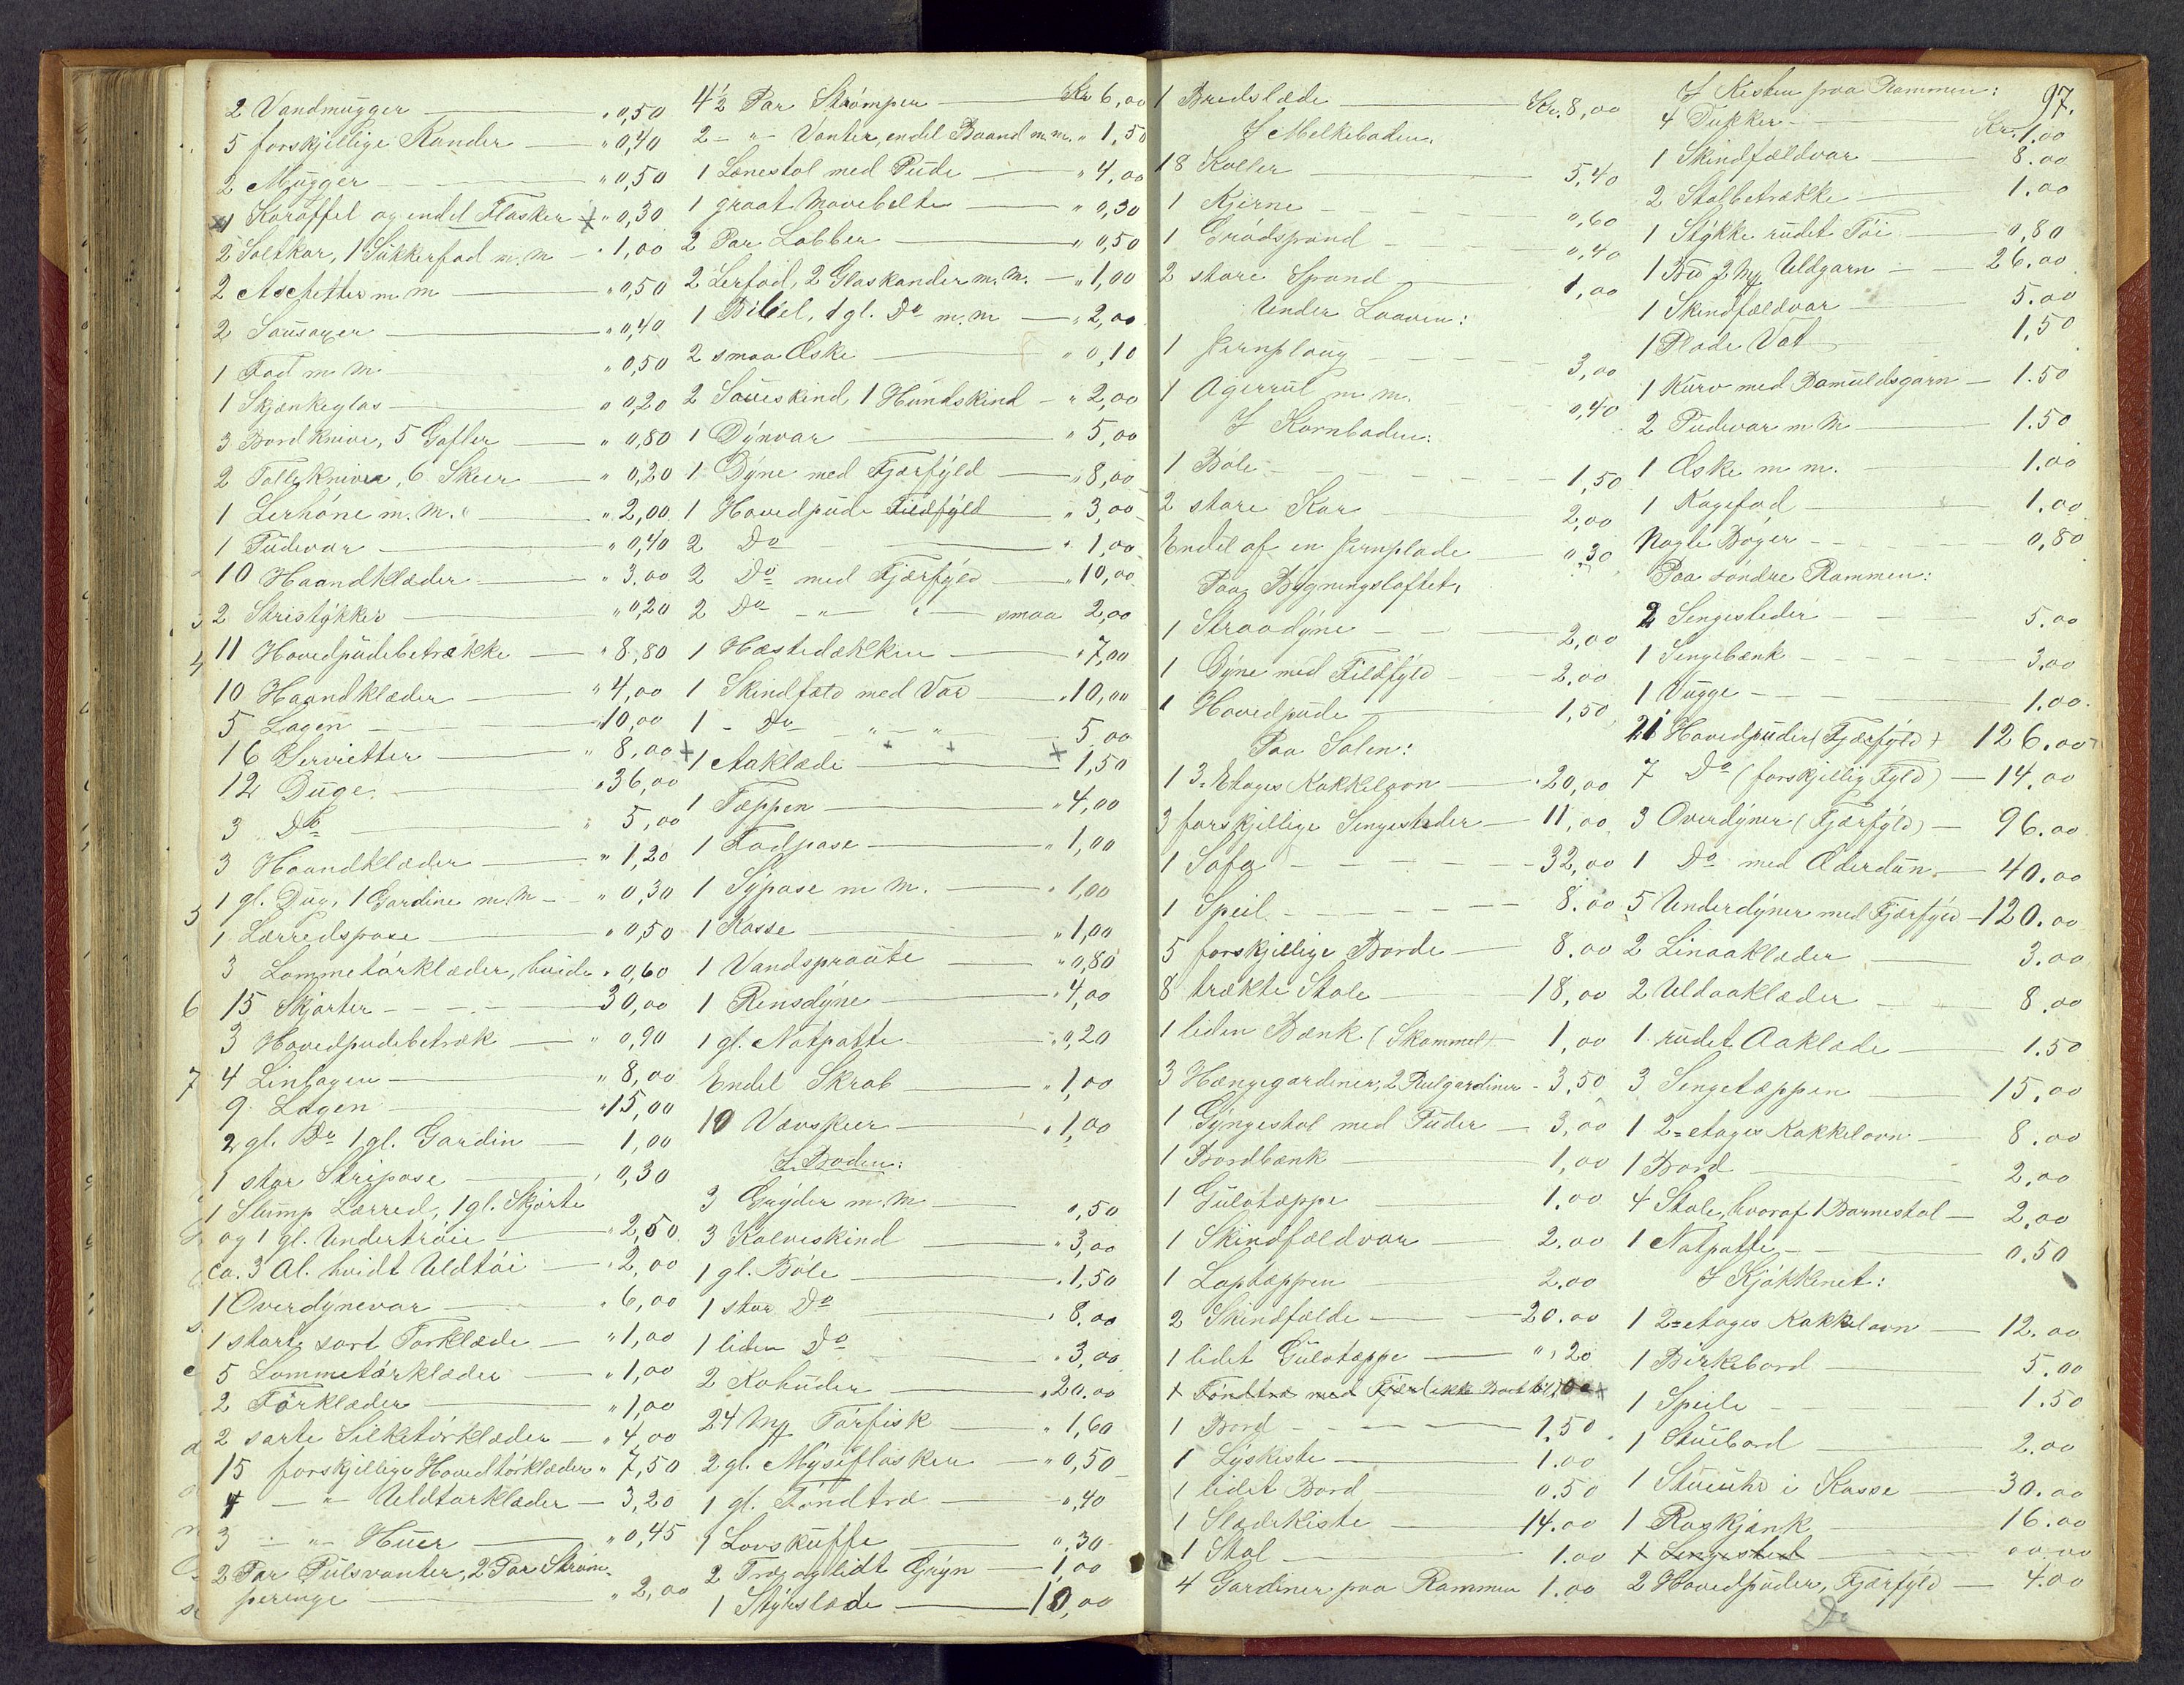 2 Vandmugger — " 0,50
5 forskjellige Kander — " 0,40
2 Mugger — " 0,50
x 1 Karaffel og endel Flasker x " 0,30
2 Saltkar, 1 Sukkerfad m.m — " 1,00
2 Aschetter m m — " 0,50
2 Sauser — " 0,40
1 Fad m. m. — " 0,50
1 Skjænkeglas — " 0,20
3 Bordknive, 5 Gafler — " 0,80
2 Tolleknive, 6 Skeer — " 0,20
1 Lerhøne m. m. — " 2,00
1 Pudevar — " 0,40
10 Haandklæder — " 3,00
2 Skristykker — " 0,20
11 Hovedpudebetrække — " 8,80
10 Haandklæder — " 4,00
5 Lagen — " 10,00
16 Servietter — " 8,00
12 Duge — " 36,00
3 Do — " 5,00
3 Haandklæder — " 1,20
1 gl. Dug, 1 Gardine m.m — " 0,30
1 Lærredspose — " 0,50
3 Lommetørklæder, hvide " 0,60
15 Skjorter — 30,00
3 Hovedpudebetræk — " 0,90
4 Linlagen — " 8,00
9 Lagen — " 15,00
2 gl. Do 1 gl. Gardin — 1,00
1 stor Stripose — " 0,30
1 Stump Lærred, 1 gl. Skjorte
og 1 gl. Undertrøie — " 2,50
Ca. 3 Al. hvidt Uldtøi — " 2,00
1 Overdynevar — " 6,00
1 stort sort Tørklæde — " 1,00
5 Lommetørklæder — " 1,00
2 Forklæder — " 1,00
2 sorte Silketørklæder — " 4,00
15 forskjellige Hovedtørklæder " 7,50
4 — " — Uldtørklæder — 3,20
3 — " — Huer — " 0,45
2 Par Pulsvanter, 2 Par Strøm-
perenge — " 2,00
4½ Par Strømper — Kr 6,00
2 — " — Vanter, endel Baand m.m. " 1,50
1 Lænestol med Pude — " 4,00
1 graat Mavebelte — " 0,30
2 Par Labber — " 0,50
2 Lerfad, 2 Glaskander m.m. — " 1,00
1 Bibel, 1 gl. Do m. m — " 2,00
2 smaa Æske — " 0,10
2 Saueskind, 1 Hundskind — " 2,00
1 Dynvar — " 5,00
1 Dyne med Fjærfyld — " 8,00
1 Hovedpude Fildfyld — " 3,00
2 Do — " 1,00
2 Do med Fjærfyld — " 10,00
2 Do — " — " — smaa 2,00
1 Hæstedækken — " 7,00
1 Skindfæld med Var — " 10,00
1 — Do — " — " — 5,00
x 1 Aaklæde — x 1,50
1 Tæppen — " 4,00
1 Fadpose — " 1,00
1 Sypose m m. — " 1,00
1 Kasse — " 1,00
1 Vandsprøute — " 0,80
1 Rensdyne — " 4,00
1 gl. Natpotte — " 0,20
Endel Skrab — " 1,00
10 Vævskeer — " 1,00
I Boden:
3 Gryder m. m — 0,50
3 Kalveskind — " 3,00
1 gl. Bøle — " 1,50
1 stor Do — " 8,00
1 liden Do — " 3,00
2 Kohuder — " 20,00
24 Mg Tørfisk — " 1,60
2 gl. Myseflasken — " 0,50
1 gl. Tøndtræ — " ,40
1 Lovskuffe — " ,30
2 Trog og lidt Gryn — 1,00
1 Stykslæde — 10,00
97.
1 Bredslæde — Kr. 8,00
I Melkeboden.
18 Koller — 5,40
1 Kjerne — ",60
1 Grødspand — 0,40
2 store Spand — 1,00
Under Laaven:
1 Jernploug — 3,00
1 Agerrul m m. — 0,40
I Kornboden:
1 Bøle — 1,50
2 store Kar — 2,00
Endel af en Jernplade — ",30
Paa Bygningsloftet,
1 Straadyne — 2,00
1 Dyne med Fildfyld — 2,00
1 Hovedpude — 1,50
Paa Salen:
1 3-Etages Kakkelovn — 20,00
3 forskjellige Sengesteder — 11,00
1 Sofa — 32,00
1 Speil — 8.00
5 forskjellige Borde — 8.00
8 trækte Stole — 18,00
1 liden Bænk (Skammel) — 1,00
3 Hængegardiner, 2 Rulgardiner — 3,50
1 Gyngestol med Puder — 3,00
1 Bordbænk — 1,00
1 Gulvtæppe — 1.00
1 Skindfældvar — 2.00
1 Loptæppen — 2.00
2 Skindfælde — 20.00
1 lidet Gulvtæppe — ",20
1 Bord — 1.50
1 Lyskiste — 1.00
1 lidet Bord — 0.50
1 Slædekiste — 14.00
1 Stol — 1.00
4 Gardiner paa Rammen 1.00
I Kisten paa Rammen:
4 Dukker — Kr. 1.00
1 Skindfældvar — 8.00
2 Stolbetrække — 1.00
1 Stykke rudet Tøi — 0,80
1 Bu 2 Mg Uldgarn — 26.00
1 Skindfældvar — 5.00
1 Plade Vat — 1,50
1 Kurv med Bomuldsgarn — 1.50
2 Pudevar m m — 1.50
1 Æske m m. — 1.00
1 Kagefad — 1.00
Nogle Bøger — 0,80
Paa søndre Rammen:
2 Sengesteder — 5.00
1 Sengebænk — 3.00
1 Vugge — 1.00.
21 Hovedpuder (Fjærfyld) 126.00
7 Do (forskjellig Fyld) — 14.00
3 Overdyner (Fjærfyld) — 96.00
1 Do med Æderdun — 40.00
5 Underdyner med Fjærfyld — 120.00
2 Linaaklæder — 3.00
2 Uldaaklæder — 8.00
1 rudet Aaklæde — 1.50
3 Sengetæppen — 15.00
1 2=etages Kakkelovn — 8.00
1 Bord — 2,00
4 Stole, hvoraf 1 Barnestol — 2,00
1 Natpotte — 0.50
I Kjøkkenet:
1 2=etages Kakkelovn — 12.00
1 Birkebord — 5.00
1 Speile — 1.50
1 Stuebord — 2.00
1 Stueuhr i Kasse — 30.00
1 Roskjænk — 16.00
1 Sengested — 00,00
2 Hovedpuder, Fjærfyld — 4.00
Do